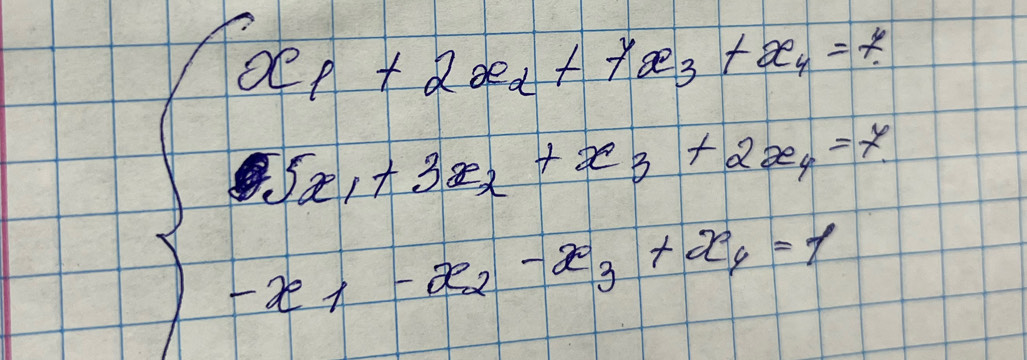 x₁ + 2x₂ + 7x₃ + x₄ = 7.
5x₁ + 3x₂ + x₃ + 2x₄ = 7.
-x₁ - x₂ - x₃ + x₄ = 1